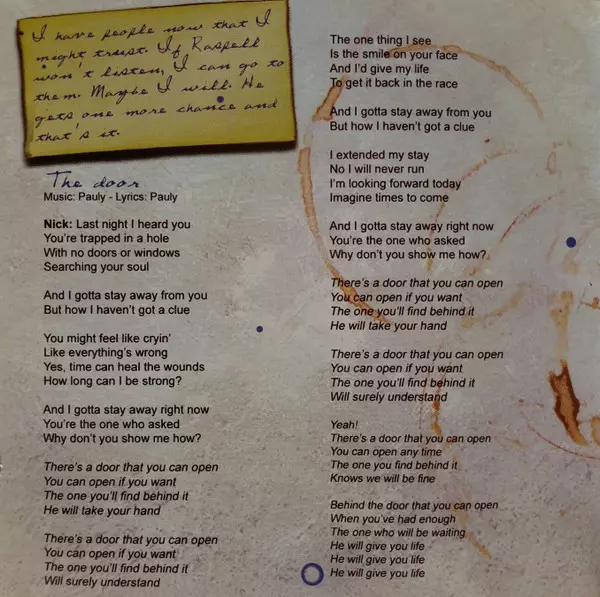 I have people now that I
might trust. If Raspell
won't listen, I can go to
them. Maybe I will. He
gets one more chance and
that's it.
The door
Music: Pauly - Lyrics: Pauly
Nick: Last night I heard you
You're trapped in a hole
With no doors or windows
Searching your soul
And I gotta stay away from you
But how I haven't got a clue
You might feel like cryin'
Like everything's wrong
Yes, time can heal the wounds
How long can I be strong?
And I gotta stay away right now
You're the one who asked
Why don't you show me how?
There's a door that you can open
You can open if you want
The one you'll find behind it
He will take your hand
There's a door that you can open
You can open if you want
The one you'll find behind it
Will surely understand
The one thing I see
Is the smile on your face
And I'd give my life
To get it back in the race
And I gotta stay away from you
But how I haven't got a clue
I extended my stay
No I will never run
I'm looking forward today
Imagine times to come
And I gotta stay away right now
You're the one who asked
Why don't you show me how?
There's a door that you can open
You can open if you want
The one you'll find behind it
He will take your hand
There's a door that you can open
You can open if you want
The one you'll find behind it
Will surely understand
Yeah!
There's a door that you can open
You can open any time
The one you find behind it
Knows we will be fine
Behind the door that you can open
When you've had enough
The one who will be waiting
He will give you life
He will give you life
He will give you life